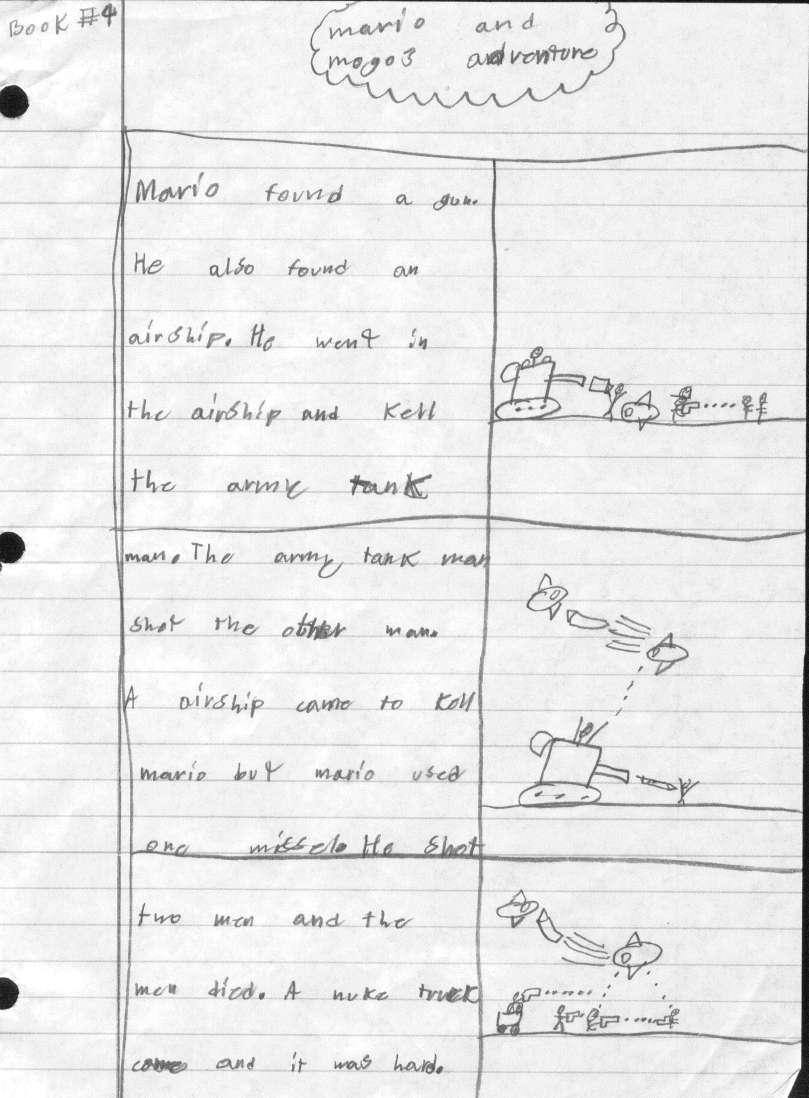 BOOK #4
mario and
mogo3 adventure
Mario found a gun.
He also found an
airship. He went in
the airship and Kell
the army tank
man. The army tank man
shot the other man.
A airship came to Kell
mario but mario used
one missel. He shot
two men and the
men died. A nuke truck
came and it was hard.